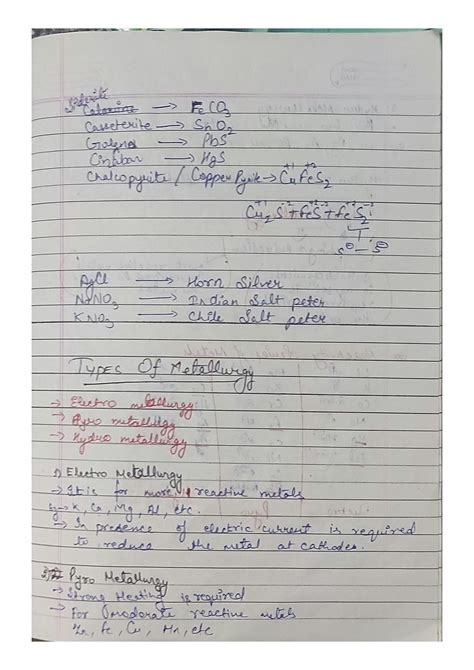 Siderite
Calamine → FeCO3
Casseterite → SnO2
Galena → PbS
Cinabar → HgS
Chalcopyrite / Copper Pyrite → Cu+1Fe+2S2
Cu2+1S-2 + Fe+2S-2 + Fe+2S2-1
S⊖—S⊖
AgCl → Horn Silver
NaNO3 → Indian Salt peter
KNO3 → Chile Salt peter
Types Of Metallurgy
→ Electro metallurgy
→ Pyro metallurgy
→ Hydro metallurgy
1) Electro Metallurgy
→ It is for more reactive metals
Eg → K, Ca, Mg, Al, etc.
→ In presence of electric current is required
to reduce the metal at cathodes.
Pyro Metallurgy
→ Strong Heating is required
→ For moderate reactive metals
Zn, Fe, Cu, Mn, etc